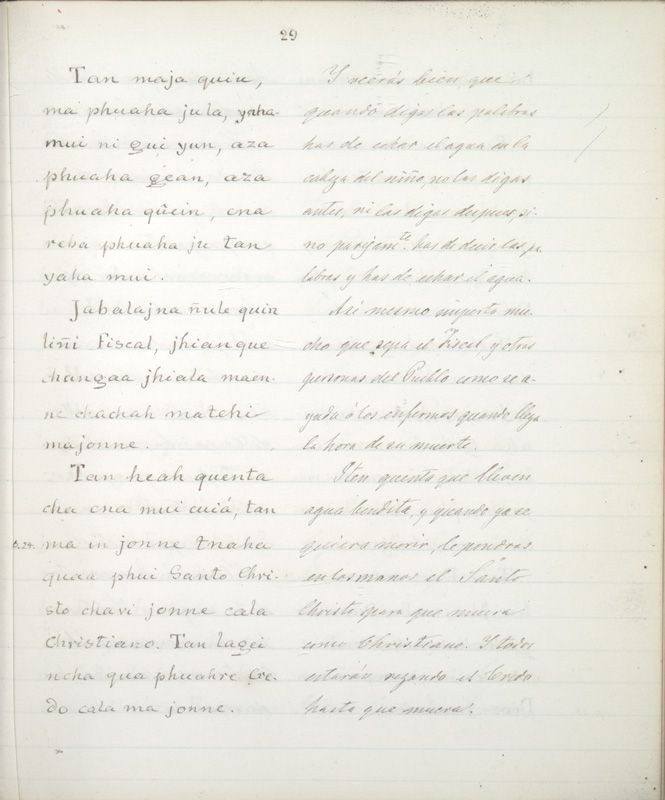 29
Tan maja quiu,
ma phuaha jula, yaha
mui ni gui yun, aza
phuaha gean, aza
phuaha qûein, cna
reba phuaha ju tan
yaha mui.
Jabalajna ñule quin
liñi Fiscal, jhianque
changaa jhiala maen-
ne chachah matehi
majonne.
Tan heah quenta
cha cna mui cuiá, tan
ma in jonne tnaha
quaa phui Santo Chri-
sto chavi jonne cala
Christiano. Tan lagei
ncha qua phuahre Cre-
do cala ma jonne.
p.24.
Y veras bien, que
quando digas las palabras
has de echar el agua en la
cabeza del niño, no las digas
antes, ni las digas despues, si-
no parijamte. has de decir las pa-
labras y has de echar el agua.
Asi mesmo importa mu-
cho que sepa el Fiscal, y otras
personas del Pueblo como se a-
yuda à los enfermos quando llega
la hora de su muerte.
Iten quenta que lleven
agua bendita, y quando ya se
quiera morir, le pondras
en las manos el Santo
Christo para que muera
como Christiano. Y todos
estarán rezando el Credo
hasta que muera.